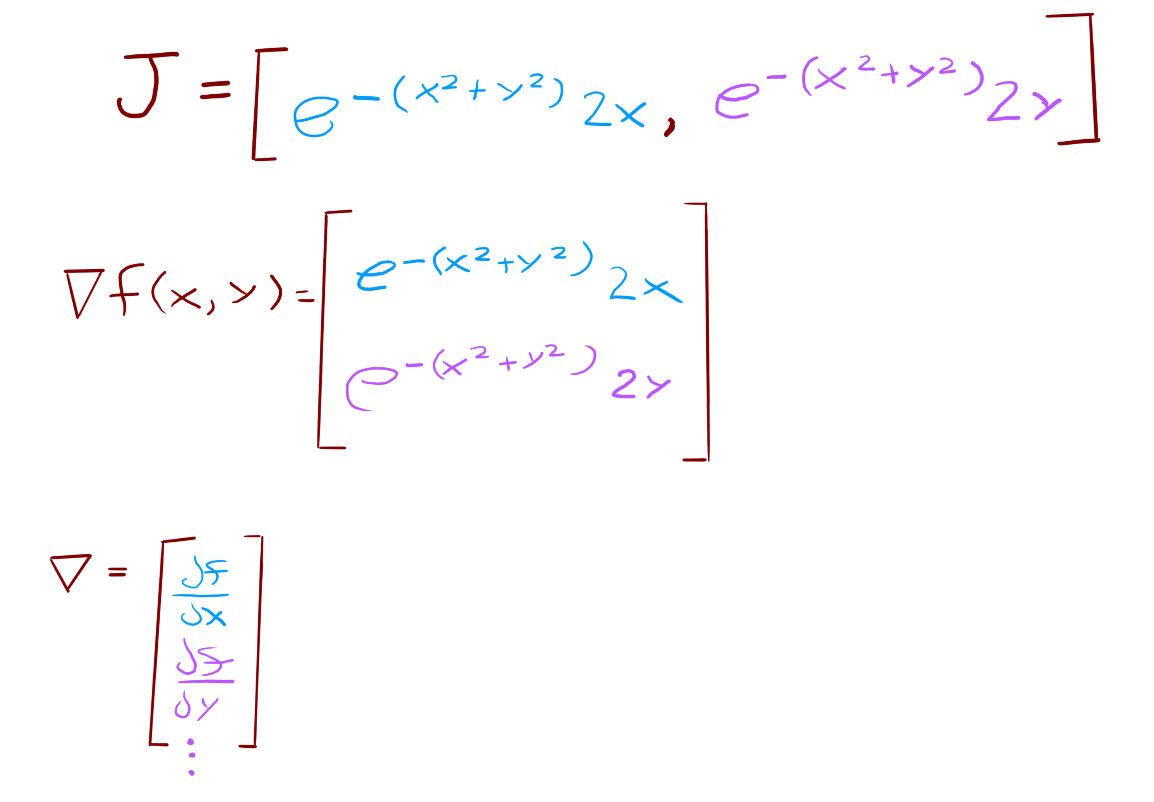 J = [e^-(x²+y²) 2x, e^-(x²+y²) 2y]
∇f(x,y) = [e^-(x²+y²) 2x
e^-(x²+y²) 2y]
∇ = [∂f/∂x
∂f/∂y
⋮]